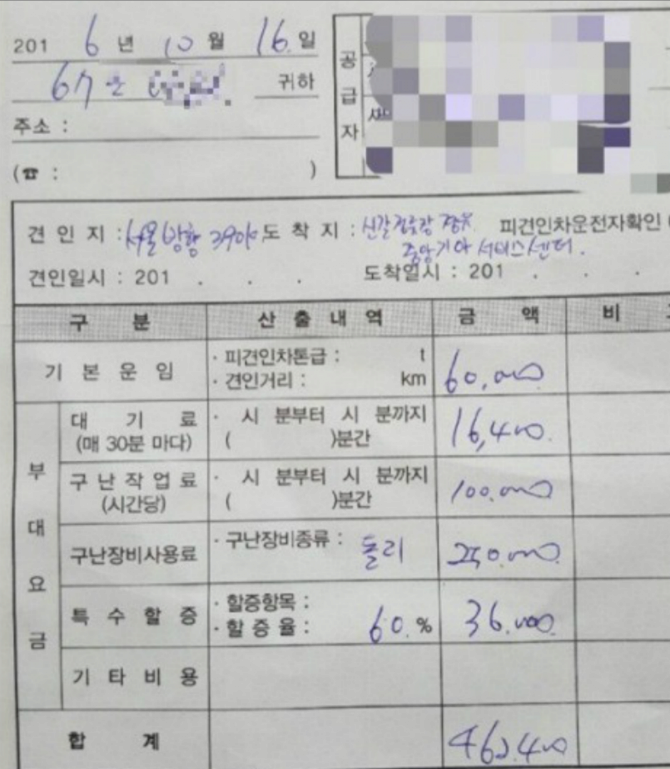 2016년 10월 16.일
귀하
주소 :
(☎ : )
공급자
견인지 : 서울방향 39이 도착지 : 신갈정류장 경유 피견인차운전자확인 (
중앙기아 서비스센터.
견인일시 : 201 . . . 도착일시 : 201 . . .
구 분 산출내역 금 액 비
기본운임 · 피견인차톤급 : t 60,000
· 견인거리 : km
부대요금
대기료 · 시 분부터 시 분까지 16,400.
(매 30분 마다) ( )분간
구난작업료 · 시 분부터 시 분까지 100.000
(시간당) ( )분간
구난장비사용료 · 구난장비종류 : 돌리 250.000
특수할증 · 할증항목 : 36.000
· 할증율 : 60.%
기타비용
합 계 462.400